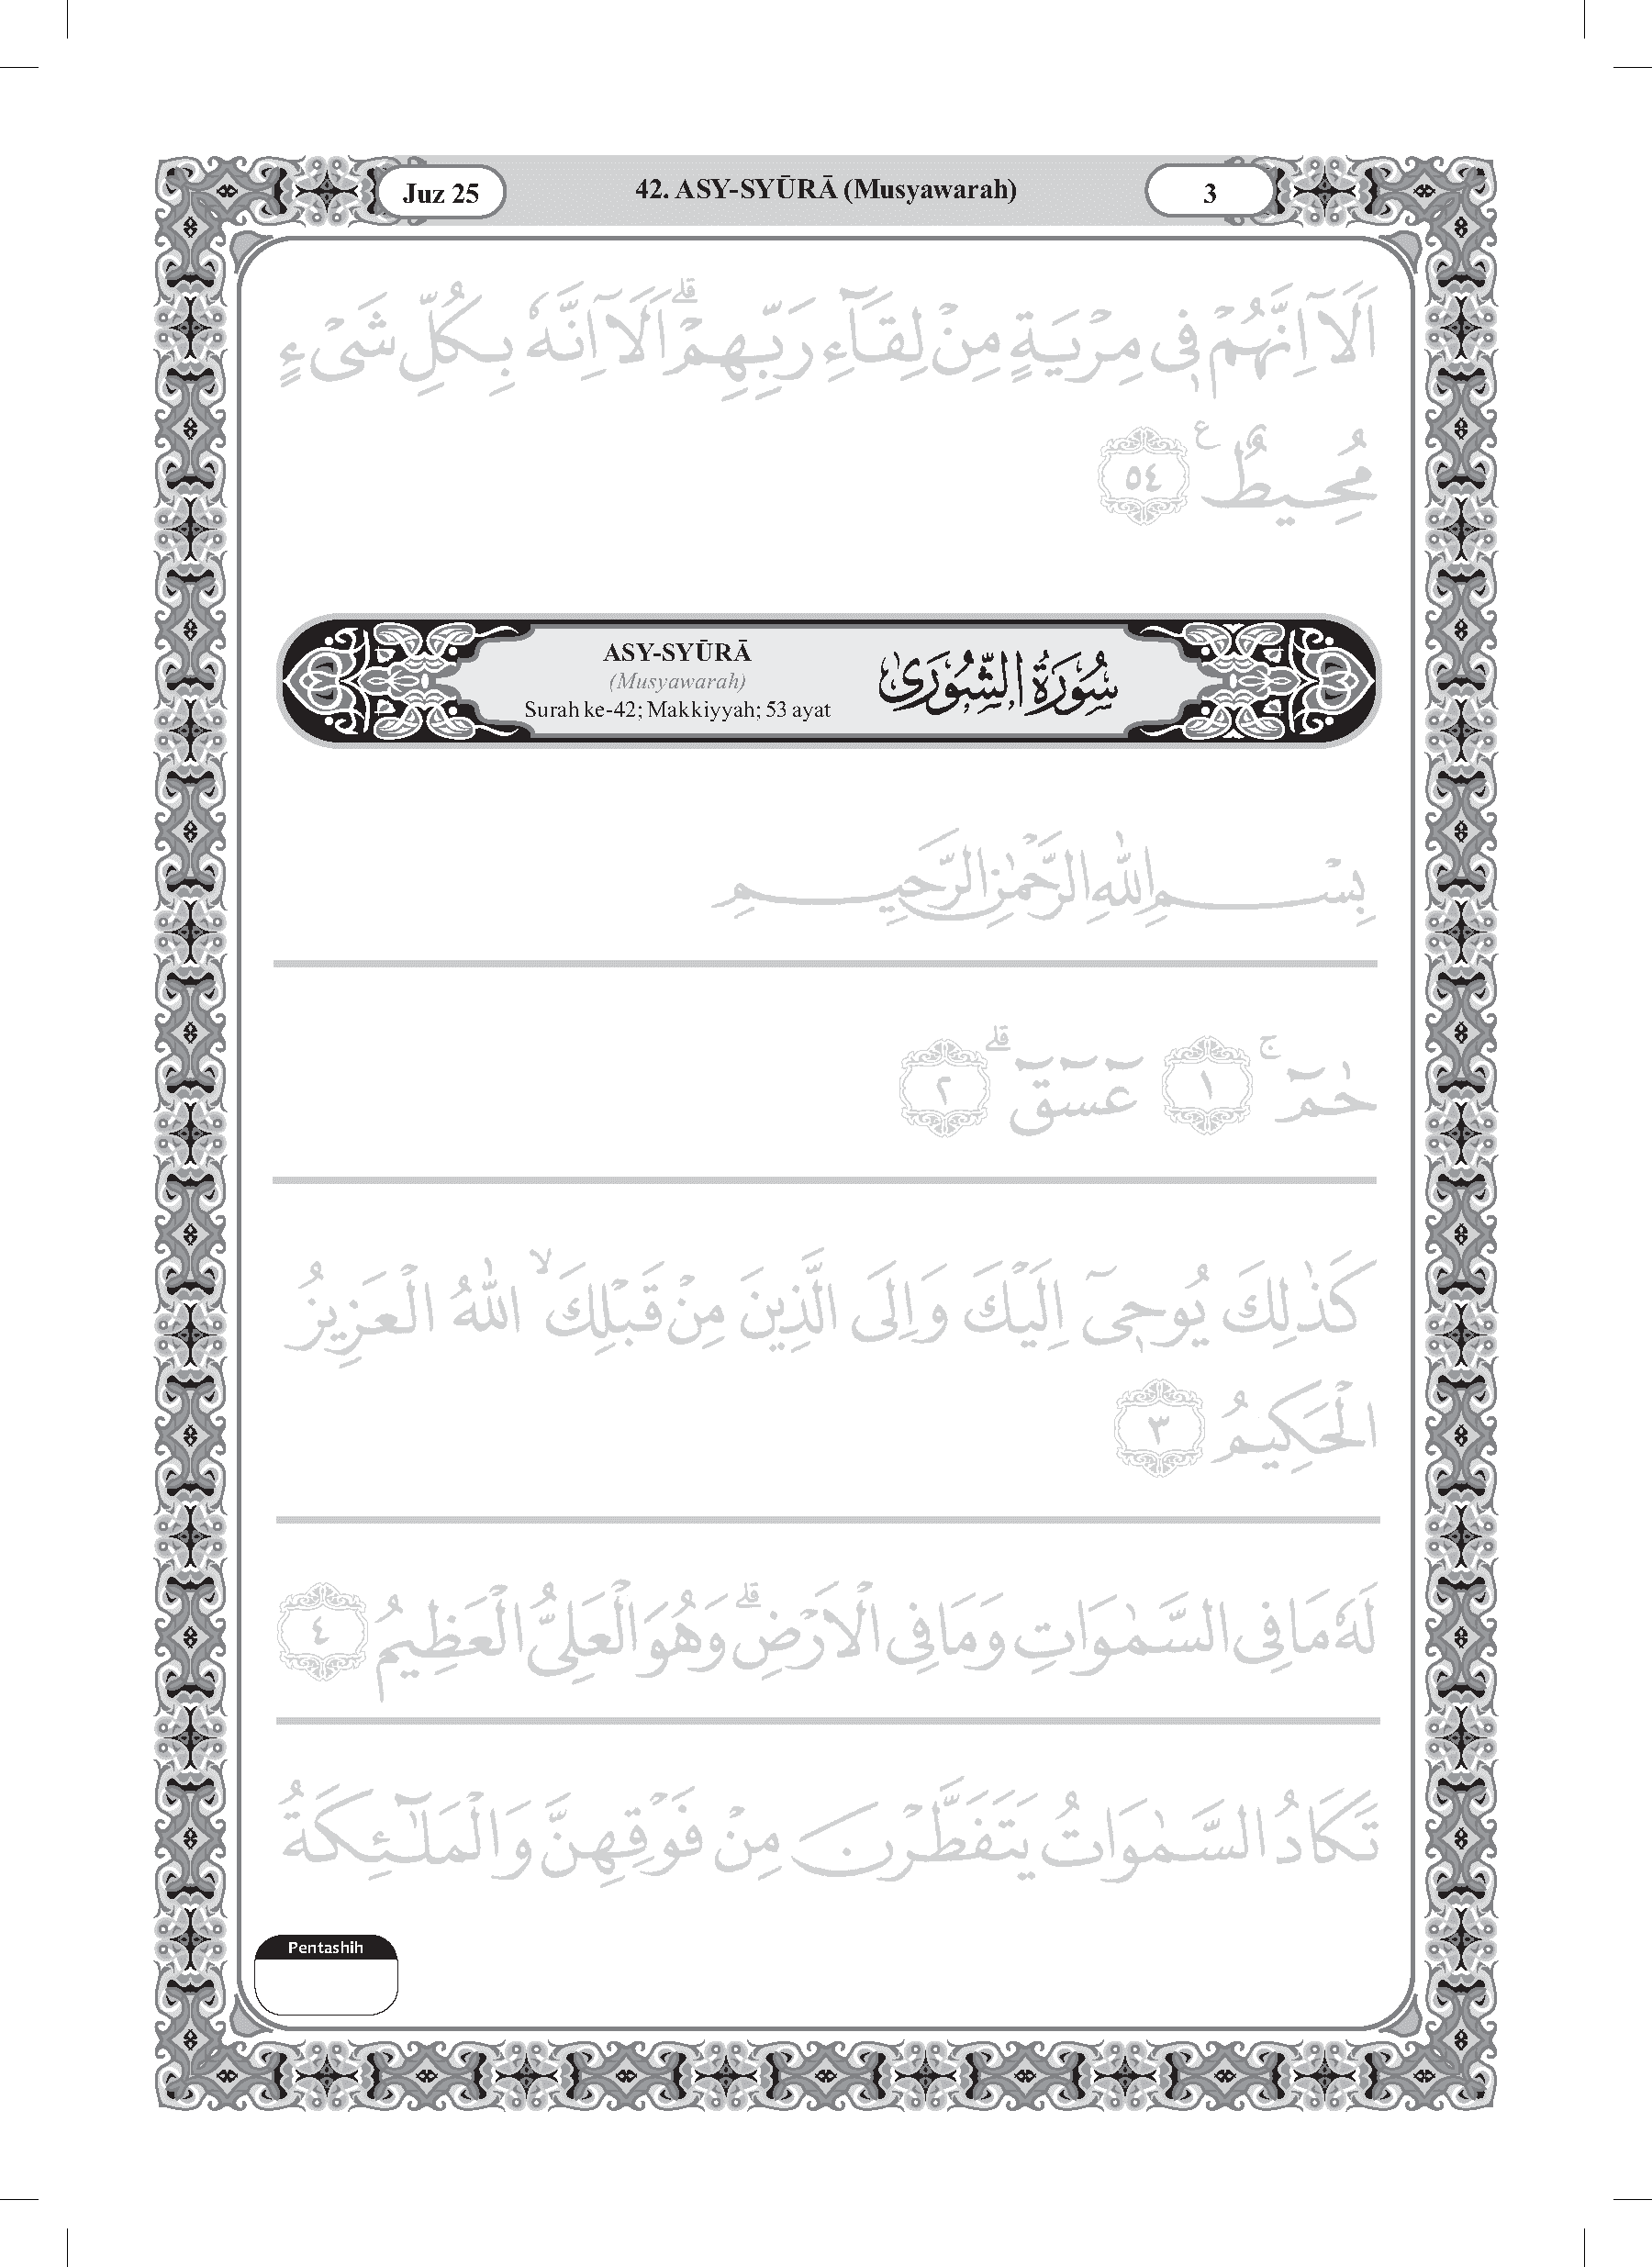 Juz 25
42. ASY-SYŪRĀ (Musyawarah)
3
اَلَآ اِنَّهُمْ فِيْ مِرْيَةٍ مِّنْ لِّقَاۤءِ رَبِّهِمْ ۗ اَلَآ اِنَّهٗ بِكُلِّ شَيْءٍ
مُّحِيْطٌ ࣖ ٥٤
ASY-SYŪRĀ
(Musyawarah)
Surah ke-42; Makkiyyah; 53 ayat
سُوْرَةُ الشُّوْرٰى
بِسْمِ اللّٰهِ الرَّحْمٰنِ الرَّحِيْمِ
حٰمۤ ۚ ١ عۤسۤقۤ ۗ ٢
كَذٰلِكَ يُوْحِيْٓ اِلَيْكَ وَاِلَى الَّذِيْنَ مِنْ قَبْلِكَ ۙ اللّٰهُ الْعَزِيْزُ
الْحَكِيْمُ ٣
لَهٗ مَا فِى السَّمٰوَاتِ وَمَا فِى الْاَرْضِ ۗ وَهُوَ الْعَلِيُّ الْعَظِيْمُ ٤
تَكَادُ السَّمٰوَاتُ يَتَفَطَّرْنَ مِنْ فَوْقِهِنَّ وَالْمَلٰۤىِٕكَةُ
Pentashih